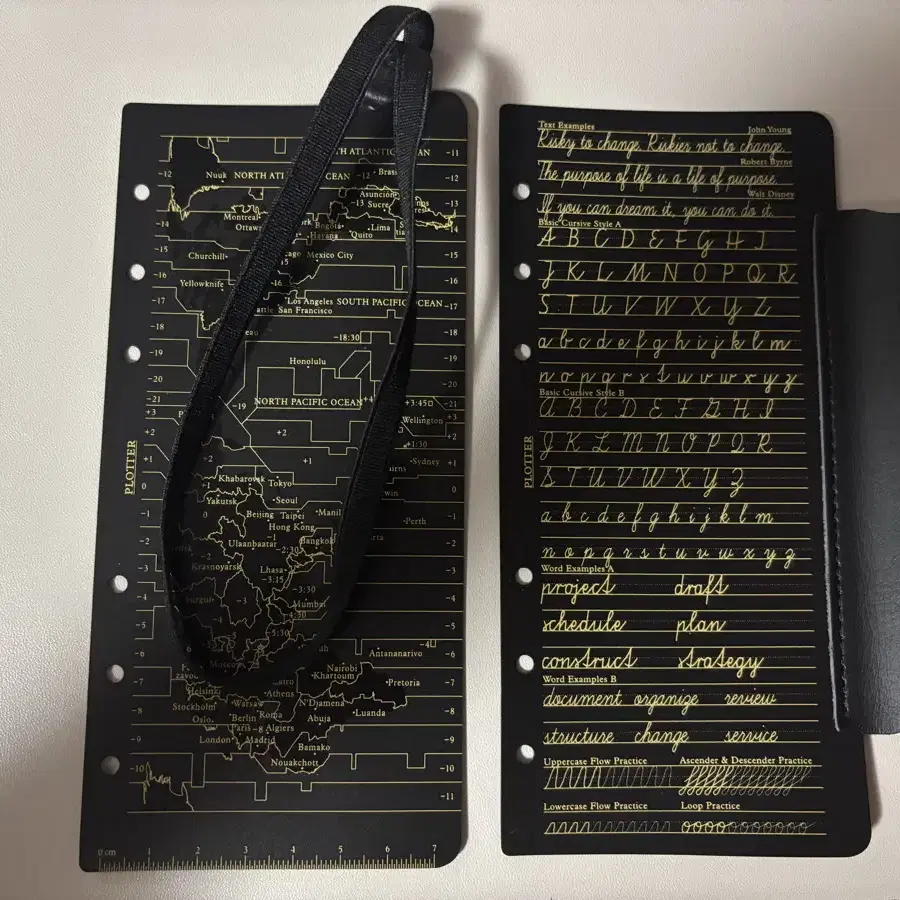 ATLANTIC
-11
-12
Nuuk
NORTH
OCEAN
-12
Asunción
-13
Sucre
Montreal
Ottawa
Bogota
Havana
Quito
Lima
-14
Churchill
Mexico City
-15
-16
Yellowknife
-16
Los Angeles
SOUTH PACIFIC OCEAN
-17
San Francisco
-18
-18:30
-19
Honolulu
-19
-20
-20
-21
NORTH PACIFIC OCEAN
+4
+3:45
-21
+3
-19
+3
Wellington
+2
+2
+2
+1:30
+1
+1
Sydney
+1
Khabarovsk
Tokyo
0
0
Yakutsk
Seoul
0
Beijing
Taipei
-1
Hong Kong
Perth
-1
Ulaanbaatar
-2:30
Bangkok
-2
-2
Krasnoyarsk
Lhasa
-3:15
-3
-3
-3:30
-3
Mumbai
-4
-4
-5:30
-5
-5
-4
Antananarivo
-6
Nairobi
-6
Khartoum
Pretoria
-7
Helsinki
Athens
-7
Warsaw
N'Djamena
Stockholm
Roma
Luanda
-8
Oslo
Berlin
Abuja
-8
Paris
-8
Algiers
London
Madrid
Bamako
-9
-9
Nouakchott
-10
-10
-11
PLOTTER
0 cm 1 2 3 4 5 6 7
Text Examples
John Young
Risky to change. Riskier not to change.
Robert Byrne
The purpose of life is a life of purpose.
Walt Disney
If you can dream it, you can do it.
Basic Cursive Style A
A B C D E F G H I
J K L M N O P Q R
S T U V W X Y Z
a b c d e f g h i j k l m
n o p q r s t u v w x y z
Basic Cursive Style B
A B C D E F G H I
J K L M N O P Q R
S T U V W X Y Z
a b c d e f g h i j k l m
n o p q r s t u v w x y z
Word Examples A
project draft
schedule plan
construct strategy
Word Examples B
document organize review
structure change service
Uppercase Flow Practice
Ascender & Descender Practice
Lowercase Flow Practice
Loop Practice
PLOTTER